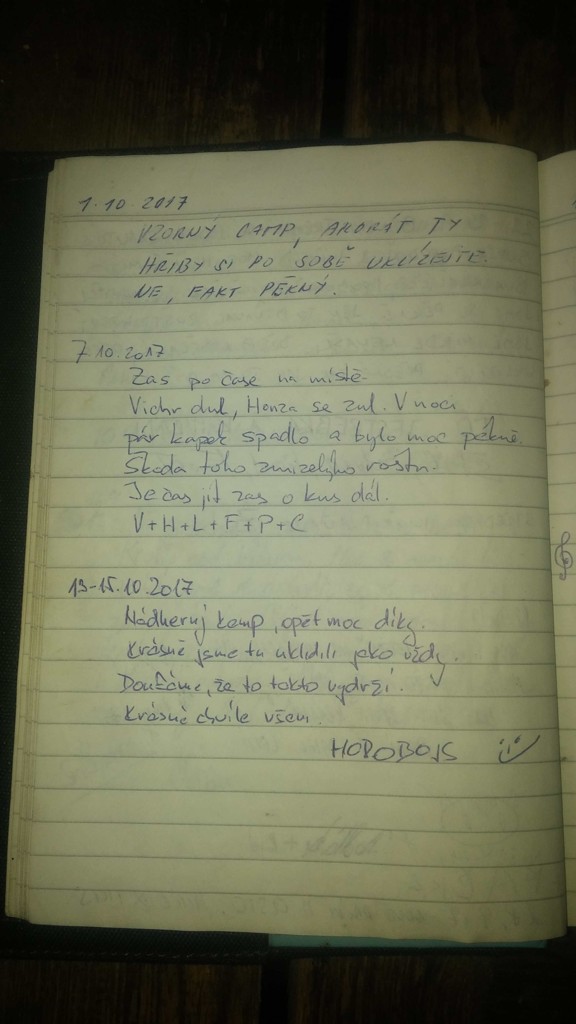 1.10.2017
VZORNÝ CAMP, AKORÁT TY
HŘIBY SI PO SOBĚ UKLÍZEJTE.
NE, FAKT PĚKNÝ.
7.10.2017
Zas po čase na místě.
Vichr dul, Honza se zul. V noci
pár kapek spadlo a bylo moc pěkně.
Škoda toho zmizelýho roštu.
Je čas jít zas o kus dál.
V+H+L+F+P+C
13-15.10.2017
Nádherný kemp, opět moc díky.
Krásně jsme tu uklidili jako vždy.
Doufáme, že to takto vydrží.
Krásné chvíle všem.
HOROBOJS